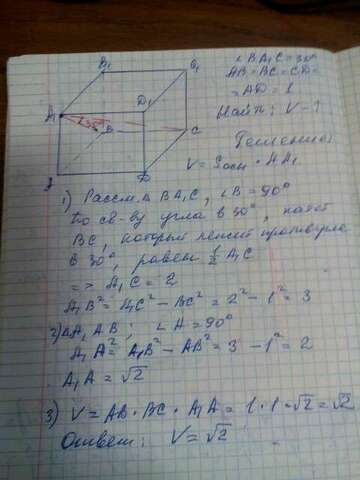 B₁
C₁
A₁
D₁
30°
B
C
D
∠BA₁C = 30°
AB = BC = CD =
= AD = 1
Найт: V - ?
Решение
V = Sосн · AA₁
1) Рассм. Δ BA₁C, ∠B = 90°
По св-ву угла в 30°, катет
BC, который лежит против угла
в 30°, равен ½ A₁C
=> A₁C = 2
A₁B² = A₁C² - BC² = 2² - 1² = 3
2) ΔA₁AB: ∠A = 90°
A₁A² = A₁B² - AB² = 3 - 1² = 2
A₁A = √2
3) V = AB · BC · A₁A = 1 · 1 · √2 = √2
Ответ: V = √2